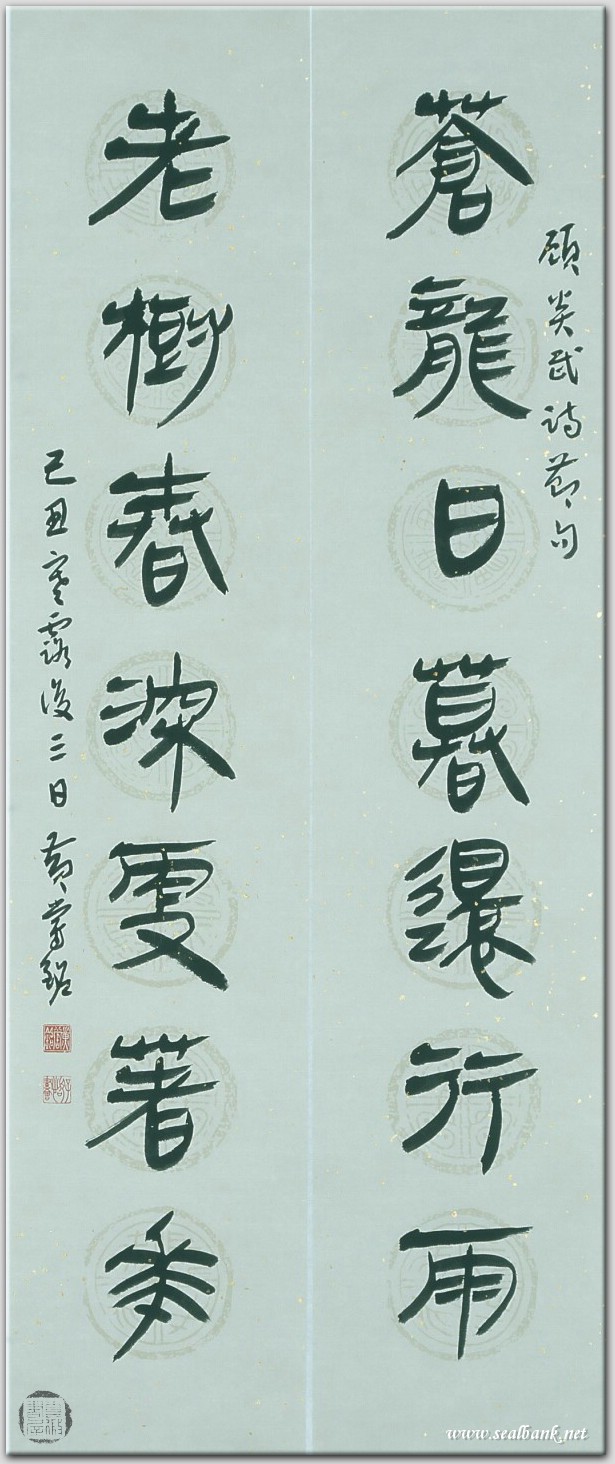 顧炎武詩節句
蒼龍日暮還行雨
老樹春深更著花
己丑寒露後三日黃嘗銘
www.sealbank.net